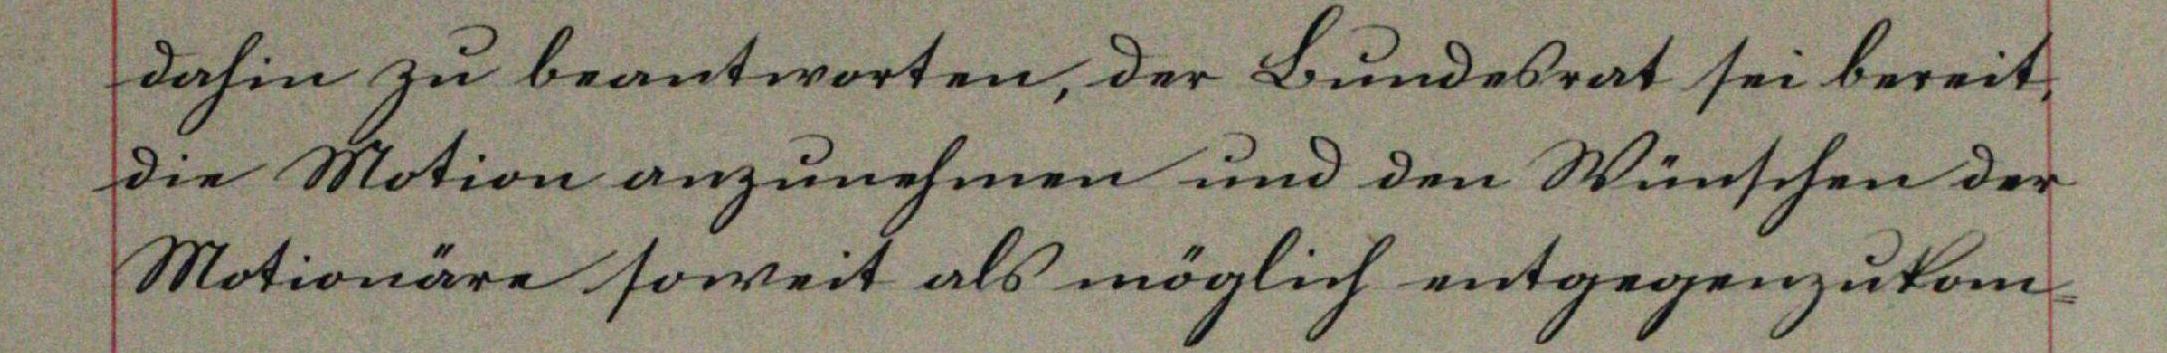 dahin zu beantworten, der Bundesrat sei bereit,
die Motion anzunehmen und den Wünschen der
Motionäre soweit als möglich entgegenzukom=